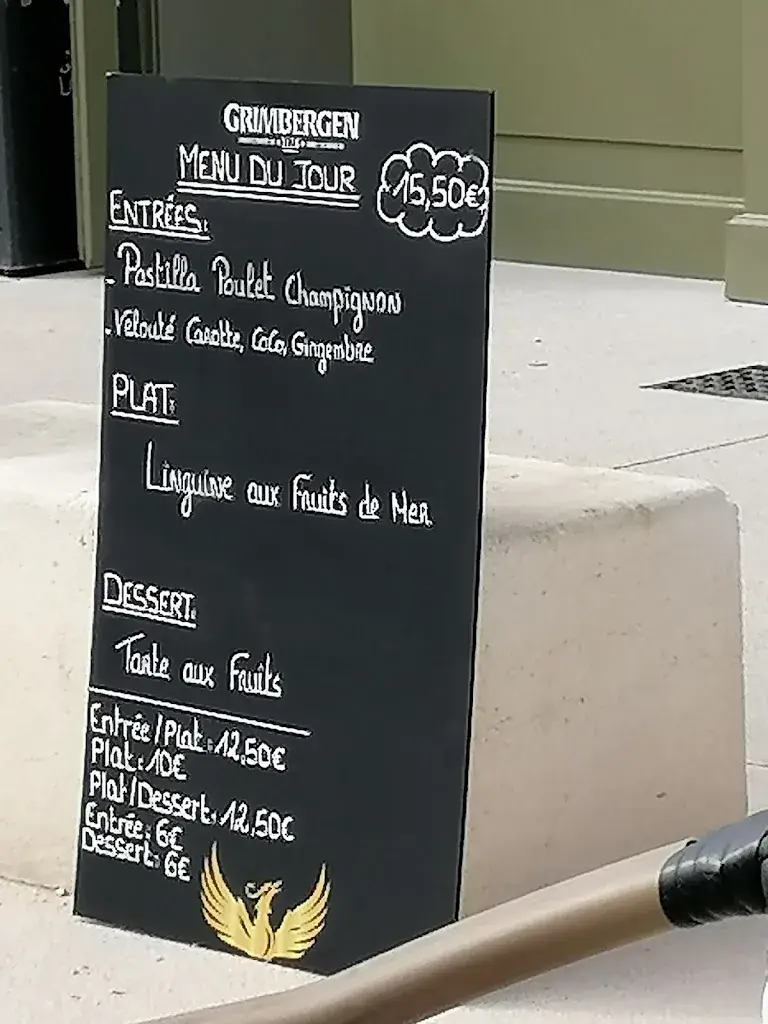 GRIMBERGEN
MENU DU JOUR
15,50€
ENTRÉES:
- Pastilla Poulet Champignon
- Velouté Carotte, Coco, Gingembre
PLAT:
Linguine aux Fruits de Mer
DESSERT:
Tarte aux Fruits
Entrée/Plat: 12,50€
Plat: 10€
Plat/Dessert: 12,50€
Entrée: 6€
Dessert: 6€